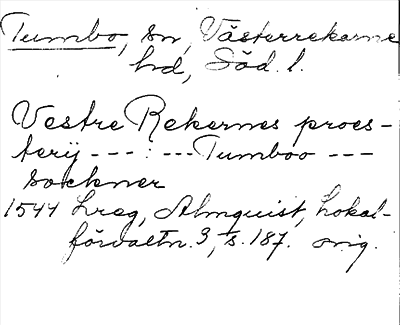 Tumbo, sn, Västerrekarne
hd, Söd. l.
Vestre Rekernes proes-
terij --- : --- Tumboo ---
sockner
1544 Lreg, Almquist, Lokal-
förvaltn. 3, s. 187. orig.